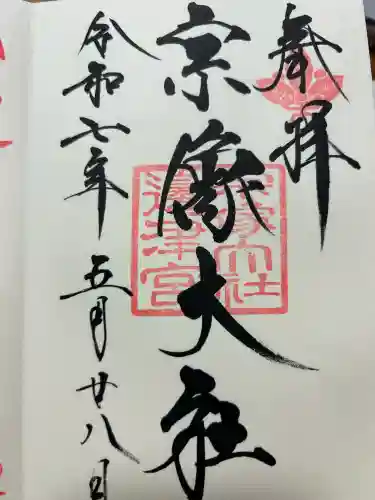 奉拝
宗像大社
令和七年 五月廿八日
宗像大社
邊津宮